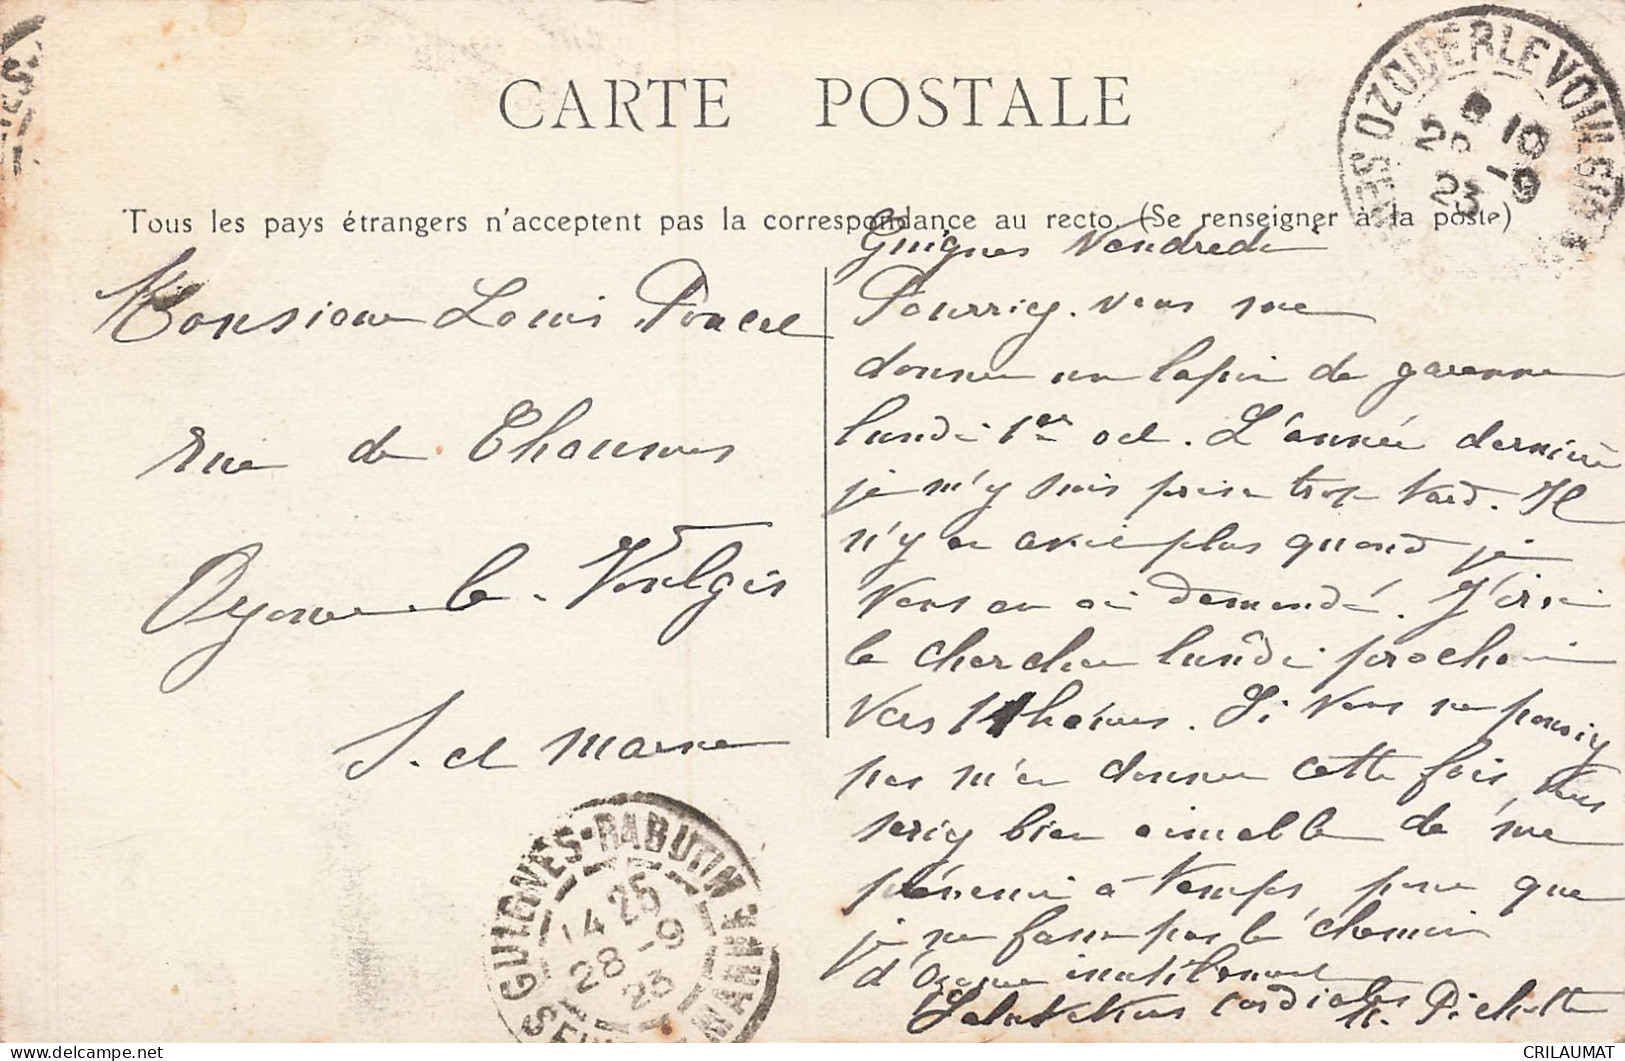 CARTE POSTALE
OZOUER LE VOULGIS
10
23 -9
Tous les pays étrangers n'acceptent pas la correspondance au recto. (Se renseigner à la poste)
Monsieur Louis
rue de Chaumes
Ozouer-le-Voulgis
S. et Marne
GUIGNES-RABUTIN
14 25
28 -9
23
SEINE MARNE
Guignes Vendredi
Pourriez-vous me
donner un lapin de garenne
lundi 1er oct. L'année dernière
je m'y suis prise trop tard. Il
n'y en avait plus quand je
vous en ai demandé. J'irai
le chercher lundi prochain
vers 11 heures. Si vous ne pensiez
pas m'en donner cette fois, vous
seriez bien aimable de me
prévenir à temps pour que
je ne fasse pas le chemin
d'Ozouer inutilement
Salutations cordiales
Pichotte
CRILAUMAT